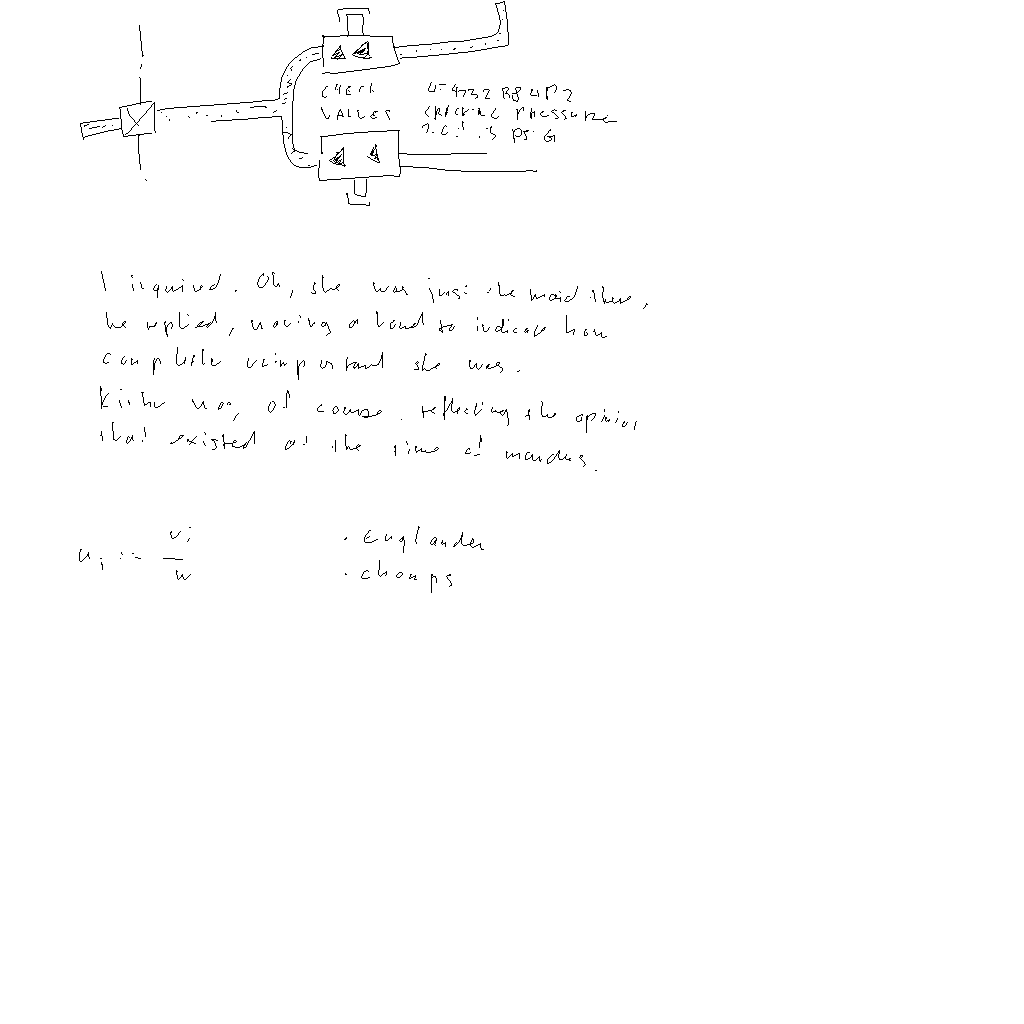 CHECK
VALVES
CRACKING PRESSURE
PSIG
I inquired. Oh, she was just the maid there,
he replied, waving a hand to indicate how
completely unimportant she was.
of course. reflecting the opinion
that existed at the time of
uᵢ := vᵢ / w
· Englander
· chomps